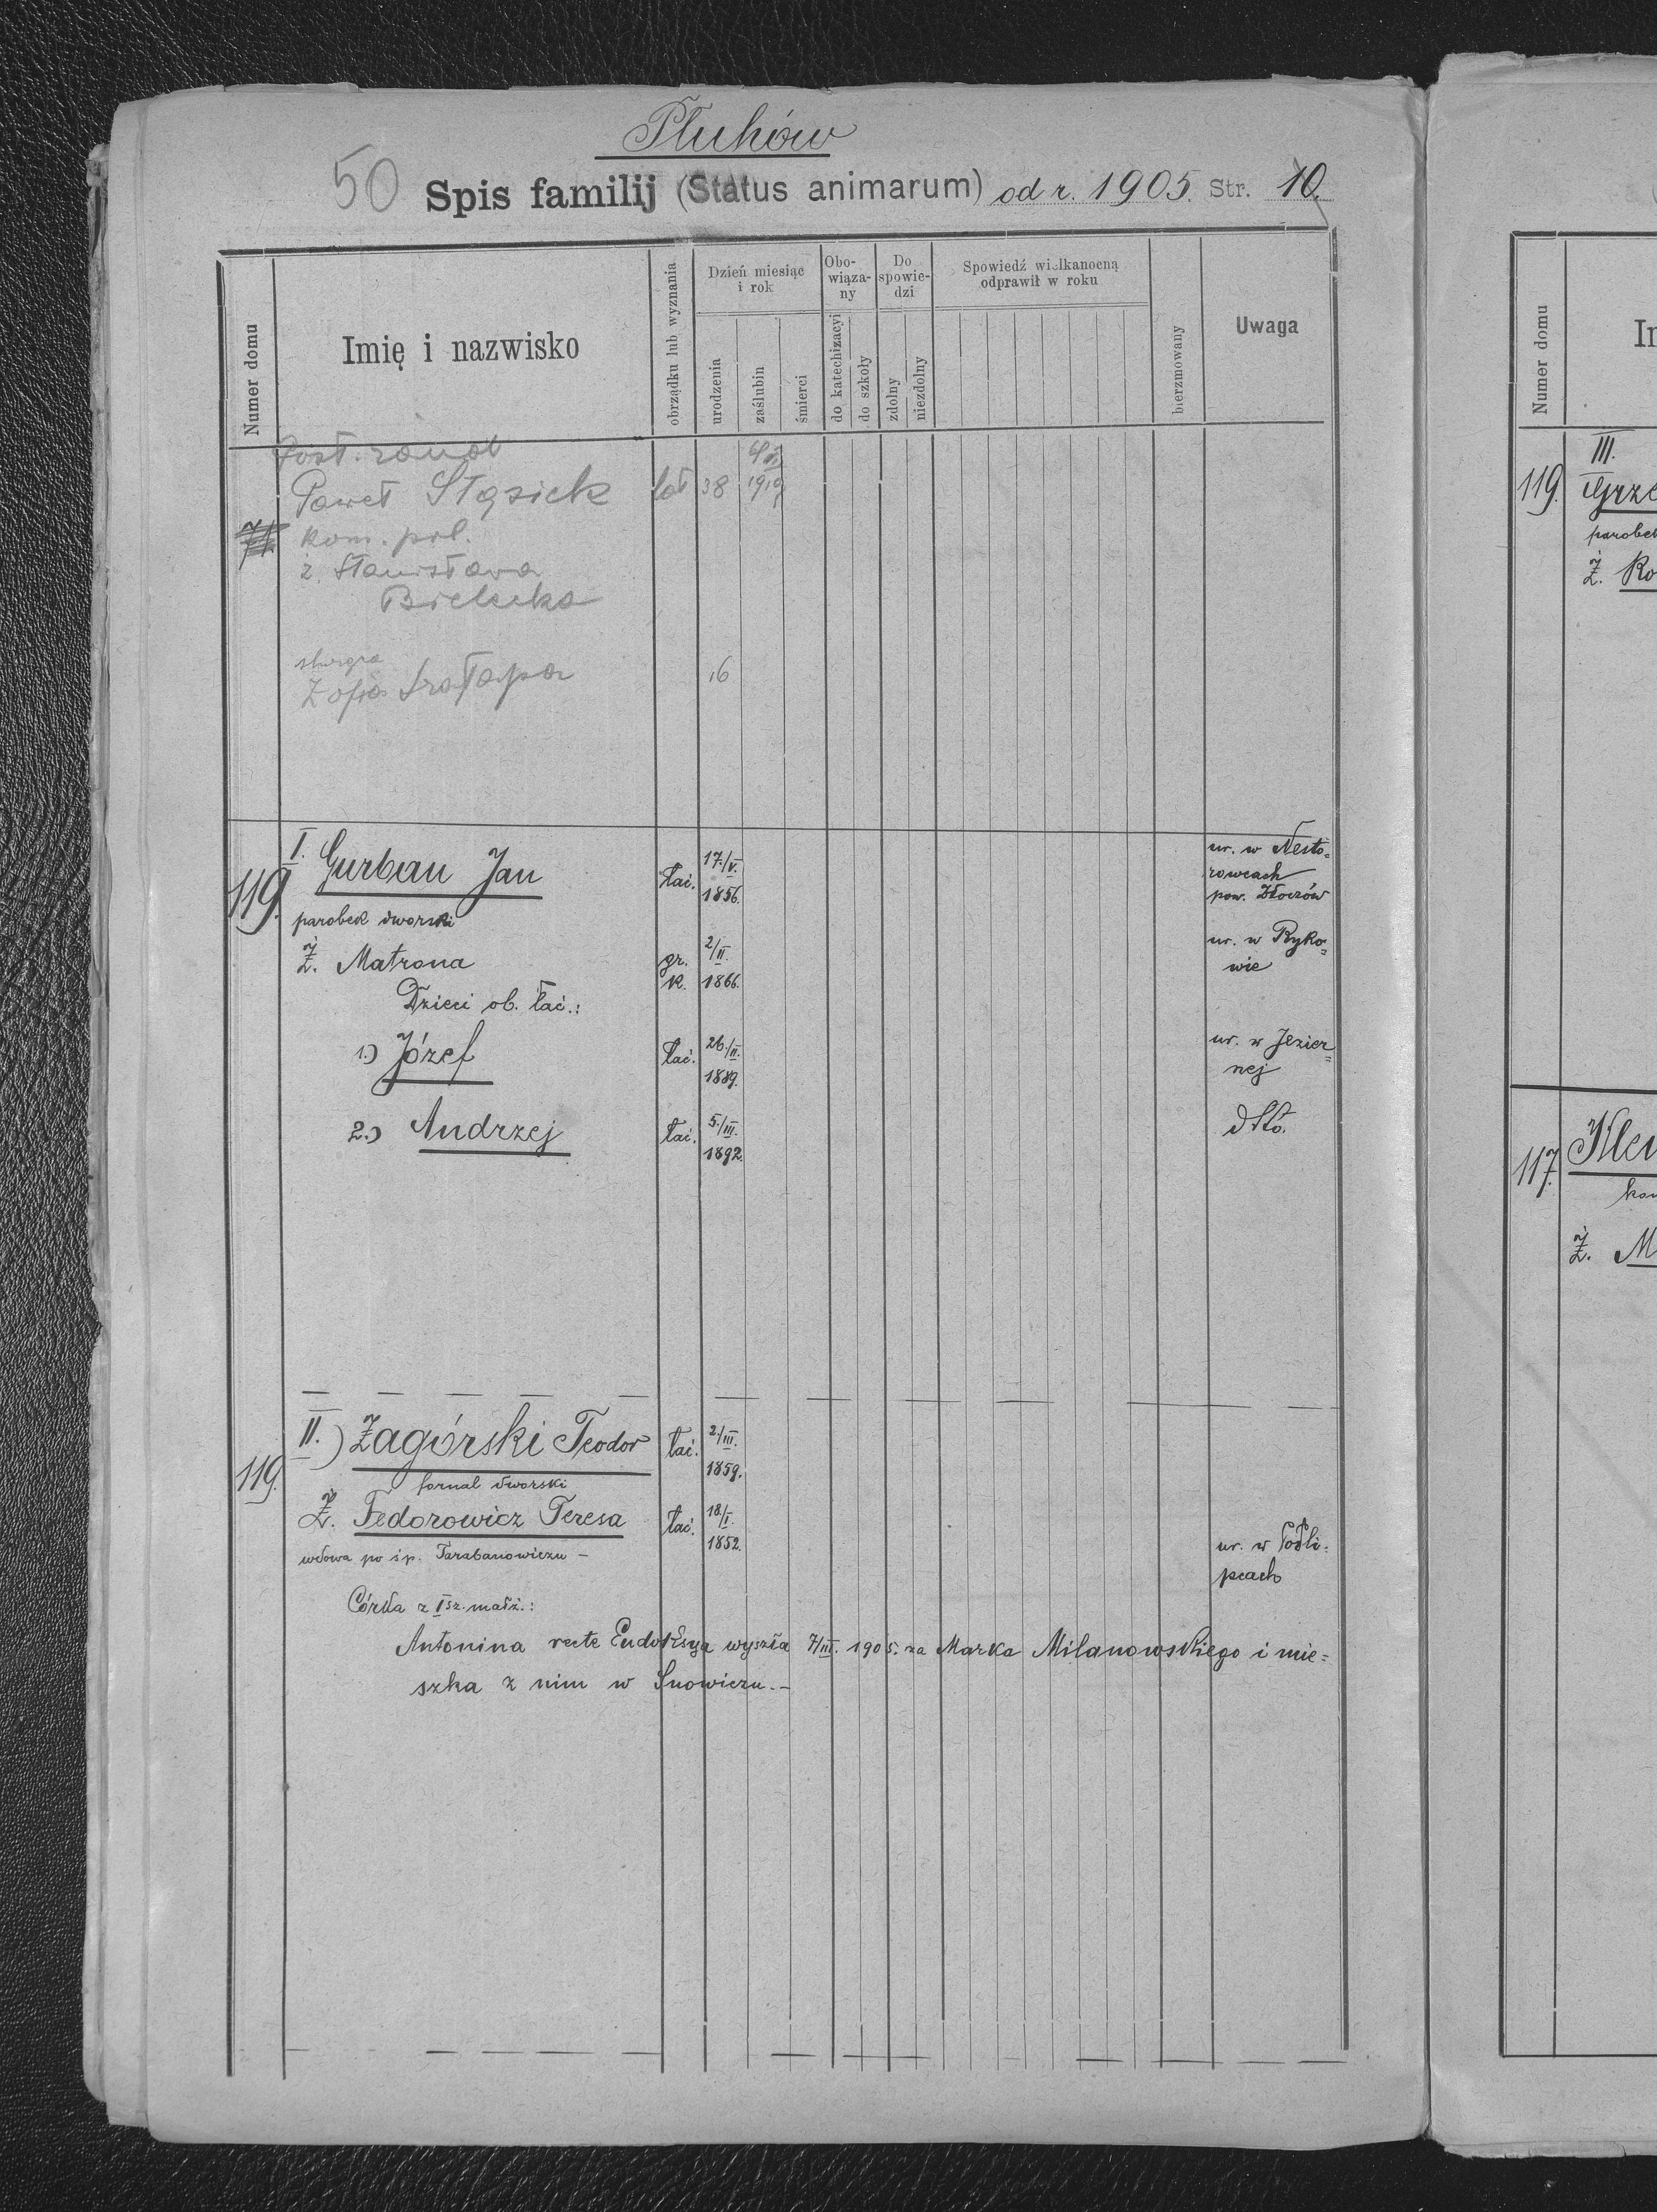 Płuhów
50 Spis familij (Status animarum) od r. 1905. Str. 10.
Numer domu
Imię i nazwisko
obrządku lub wyznania
Dzień miesiąc i rok
urodzenia
zaślubin
śmierci
Obowiązany
do katechizacyi
do szkoły
Do spowiedzi
zdolny
niezdolny
Spowiedź wielkanocną odprawił w roku
bierzmowany
Uwaga
Post.
Paweł łat 38 1919
kom. pol.
ż. Stanisława
Bielecka
Zofia 16
119. I. Gurbau Jan łać. 17./V. 1856. ur. w Nesto=
rowcach
pow. Złoczów
parobek dworski
Ż. Matrona gr. k. 2/II. 1866. ur. w Ryko=
wie
Dzieci ob. łać.:
1.) Józef łać. 26./II. 1889. ur. w Jezier=
nej
2.) Andrzej łać. 5./III. 1892. dtto.
119. II.) Zagórski Teodor łać. 2/III. 1859.
fornal dworski
Ż. Fedorowicz Teresa łać. 18./I. 1852. ur. w Podli=
pcach
wdowa po śp. Tarabanowiczu –
Córka z I sz. małż.:
Antonina recte Eudoksya wyszła 7/III. 1905. za Marka Milanowskiego i mie=
szka z nim w Snowiczu. –
Numer domu
III.
119. Grze
parobek
Ż. Ro
117.
Ż. M